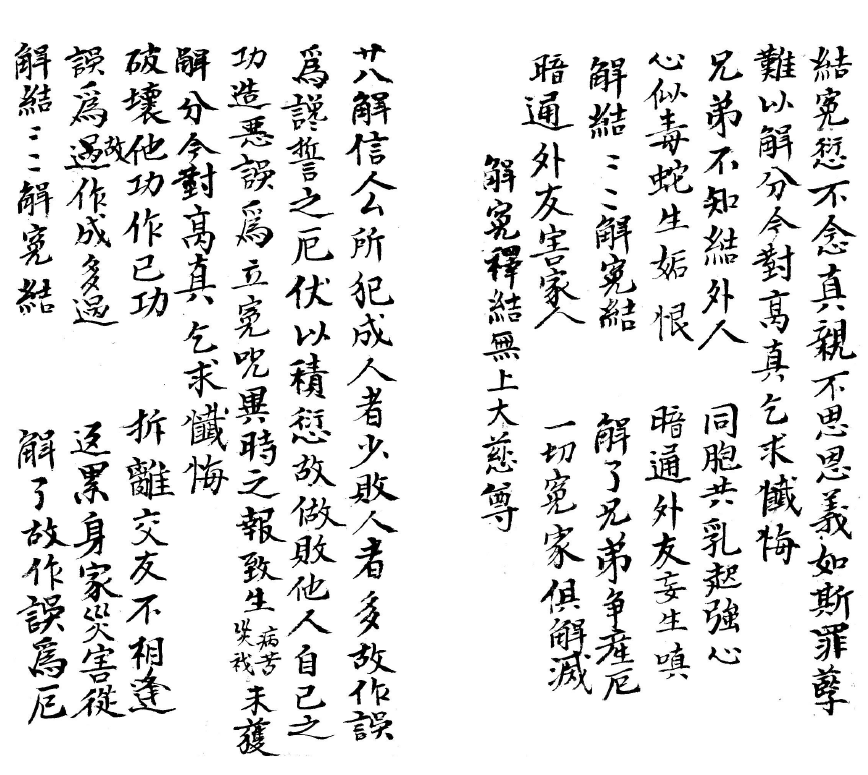 結寃愆不念真親不思恩義如斯罪孽
難以解分今對高真乞求懺悔
兄弟不知結外人 同胞共乳起強心
心似毒蛇生妬恨 暗通外友妄生嗔
解結〻〻解寃結 解了兄弟争産厄
暗通外友害家人 一切寃家俱解滅
解寃釋結無上大慈尊
廿八解信人厶所犯成人者少敗人者多故作誤
為讒誓之厄伏以積愆故做敗他人自己之
功造悪誤為立寃咒異時之報致生病苦災戕未獲
解分今對高真乞求懺悔
破壞他功作己功 拆離交友不相逢
誤為過故作成多過 返累身家災害從
解結〻〻解寃結 解了故作誤為厄